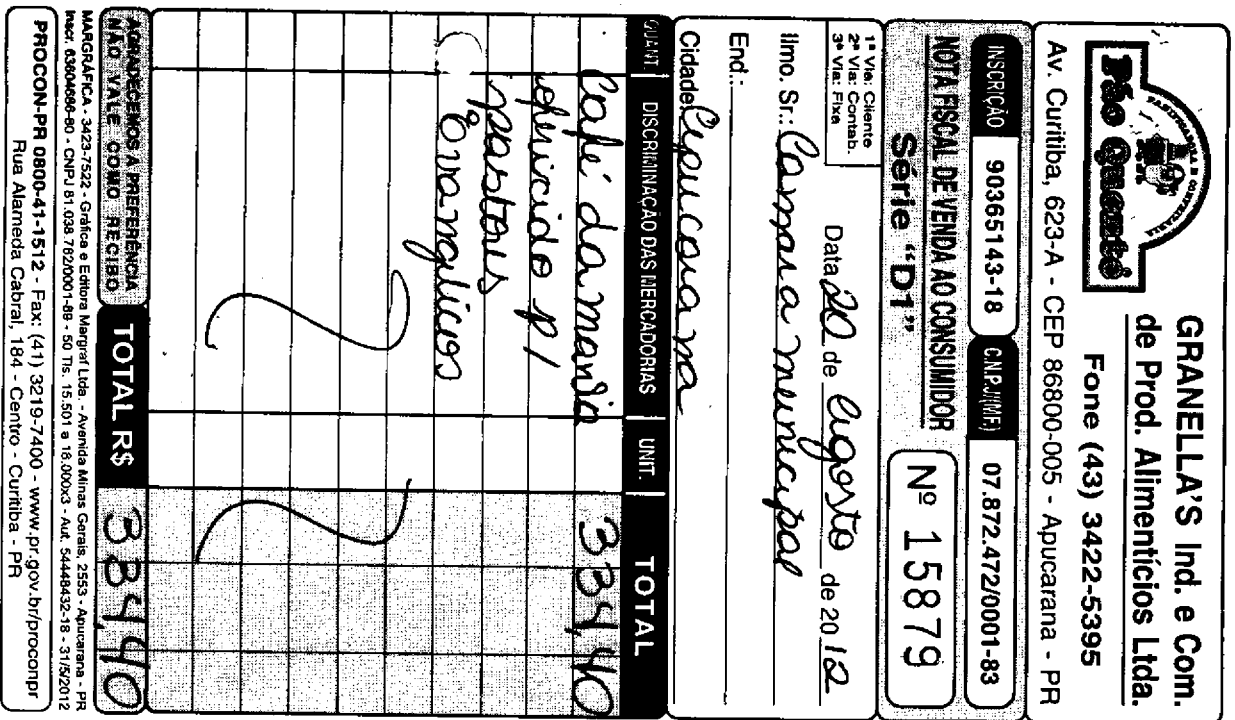 PANIFICADORA E CONFEITARIA
Pão Quente
GRANELLA'S Ind. e Com.
de Prod. Alimentícios Ltda.
Fone (43) 3422-5395
Av. Curitiba, 623-A - CEP 86800-005 - Apucarana - PR
INSCRIÇÃO 90365143-18 C.N.P.J(MF) 07.872.472/0001-83
NOTA FISCAL DE VENDA AO CONSUMIDOR
Série "D1"
Nº 15879
1ª Via: Cliente
2ª Via: Contab.
3ª Via: Fixa
Data 20 de Agosto de 2012
Ilmo. Sr.: Camara municipal
End.:
Cidade: Apucarana
QUANT. DISCRIMINAÇÃO DAS MERCADORIAS UNIT. TOTAL
Café da manhã 334,40
oferecido p/
pastores
Evangélicos
AGRADECEMOS A PREFERÊNCIA
NÃO VALE COMO RECIBO
TOTAL R$ 334,40
MARGRÁFICA - 3423-7522 - Gráfica e Editora Margraf Ltda. - Avenida Minas Gerais, 2553 - Apucarana - PR
Inscr. 63604086-80 - CNPJ 81.038.762/0001-89 - 50 Tls. 15.501 a 18.000x3 - Aut. 54448432-18 - 31/5/2012
PROCON-PR 0800-41-1512 - Fax: (41) 3219-7400 - www.pr.gov.br/proconpr
Rua Alameda Cabral, 184 - Centro - Curitiba - PR